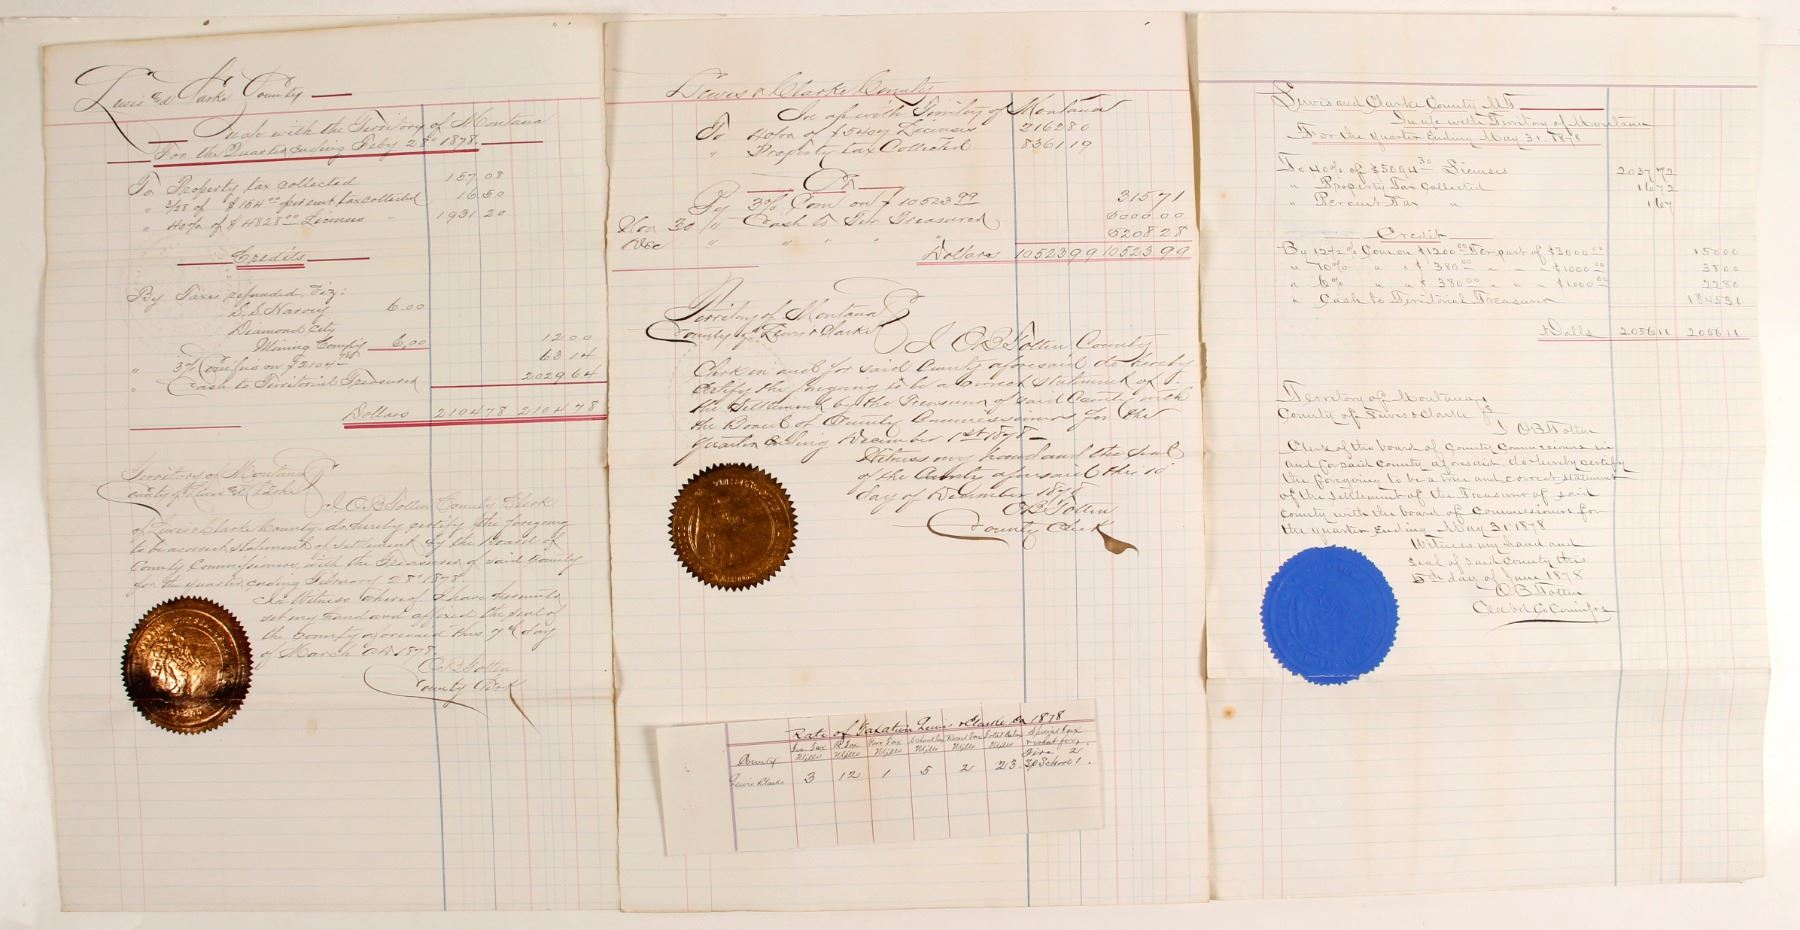 Lewis Ed Clarke County
In a/c with the Territory of Montana
For the Quarter Ending Feby 28th 1878.
To Property tax collected 157.08
" 3/28 of $154.00 per cent tax collected 16.50
" 40% of $4828.00 Licenses " 1931.20
Credits
By Taxes refunded Viz:
S.S. Harvey 6.00
Diamond City
Mining Comp'y 6.00 12.00
" 3% Com on $2104.78 63.14
" Cash to Territorial Treasurer 2029.64
Dollars 2104.78 2104.78
Territory of Montana
County of Lewis Ed Clarke
I O B Totten County Clerk
of Lewis & Clarke County do hereby certify the foregoing
to be a correct statement of settlement by the Board of
County Commissioners with the Treasurer of said County
for the quarter ending February 28th 1878.
In Witness whereof I have hereunto
set my hand and affixed the seal of
the County aforesaid this 7th day
of March A.D. 1878
O B Totten
County Clerk
Lewis & Clarke County
In a/c with Territory of Montana
To 40% of $5407 Licenses 2162 80
" Property tax Collected 8361 19
Cr
By 3% Com on $10523.99 315.71
Nov 30 " Cash to Ter Treasurer 5000.00
Dec " " " " " 5208.28
Dollars 10523 99 10523 99
Territory of Montana
County of Lewis & Clarke
I O B Totten County
Clerk in and for said County aforesaid do hereby
certify the foregoing to be a correct statement of
the Settlement by the Treasurer of said County with
the Board of County Commissioners for the
Quarter Ending December 1st 1878
Witness my hand and the seal
of the County aforesaid this 10
day of December 1878
O B Totten
County Clerk
Rate of Taxation Lewis & Clarke Co 1878
County Mills Mills Poor Tax Mills Mills Road Tax Mills Mills Special Tax
Fire 2
Lewis & Clarke 3 12 1 5 2 23. Sp School 1.
Lewis and Clarke County M.T.
In a/c with Territory of Montana
For the Quarter Ending May 31. 1878
To 40% of $5094.30 Licenses 2037 72
" Property Tax Collected 16 72
" Percent Tax " 1 67
Credit
By 12 1/2 % Com on $1200.00 Ter part of $3000.00 150 00
" 10% " " $380.00 " " " $1000.00 38 00
" 6% " " $380.00 " " " $1000.00 22 80
" Cash to Territorial Treasurer 1845 31
Dolls 2056 11 2056 11
Territory of Montana
County of Lewis & Clarke
I O B Totten
Clerk of the board of County Commissioners in
and for said County aforesaid, do hereby certify
the foregoing to be a true and correct statement
of the settlement of the Treasurer of said
county with the board of commissioners for
the quarter Ending May 31 1878
Witness my hand and
seal of said county this
5th day of June 1878
O B Totten